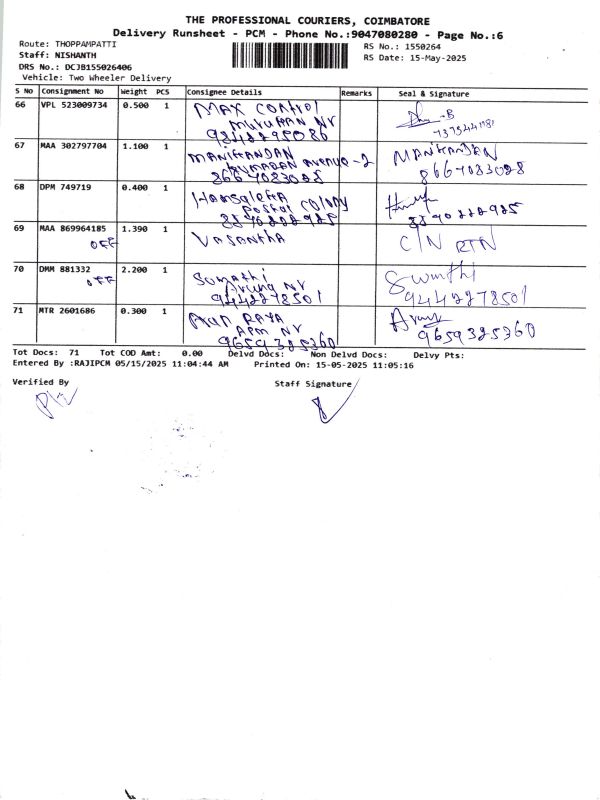 THE PROFESSIONAL COURIERS, COIMBATORE
Delivery Runsheet - PCM - Phone No.:9047080280 - Page No.:6
Route: THOPPAMPATTI
RS No.: 1550264
Staff: NISHANTH
RS Date: 15-May-2025
DRS No.: DCJB155026406
Vehicle: Two Wheeler Delivery
S No Consignment No Weight PCS Consignee Details Remarks Seal & Signature
66 VPL 523009734 0.500 1 MAX CONTROL
MURUGAN NR
67 MAA 302797704 1.100 1 MANIKANDAN MANIKANDAN
KUMARAN AVENUE-2
8667083028 8667083028
68 DPM 749719 0.400 1 Hamsalekha
Postal COLONY
69 MAA 869964185 1.390 1 VASANTHA C/N RTN
OFF
70 DMM 881332 2.200 1 Sumathi Sumthi
OFF
9442278501 9442278501
71 MTR 2601686 0.300 1 Arun
9659325360 9659325360
Tot Docs: 71 Tot COD Amt: 0.00 Delvd Docs: Non Delvd Docs: Delvy Pts:
Entered By :RAJIPCM 05/15/2025 11:04:44 AM Printed On: 15-05-2025 11:05:16
Verified By Staff Signature